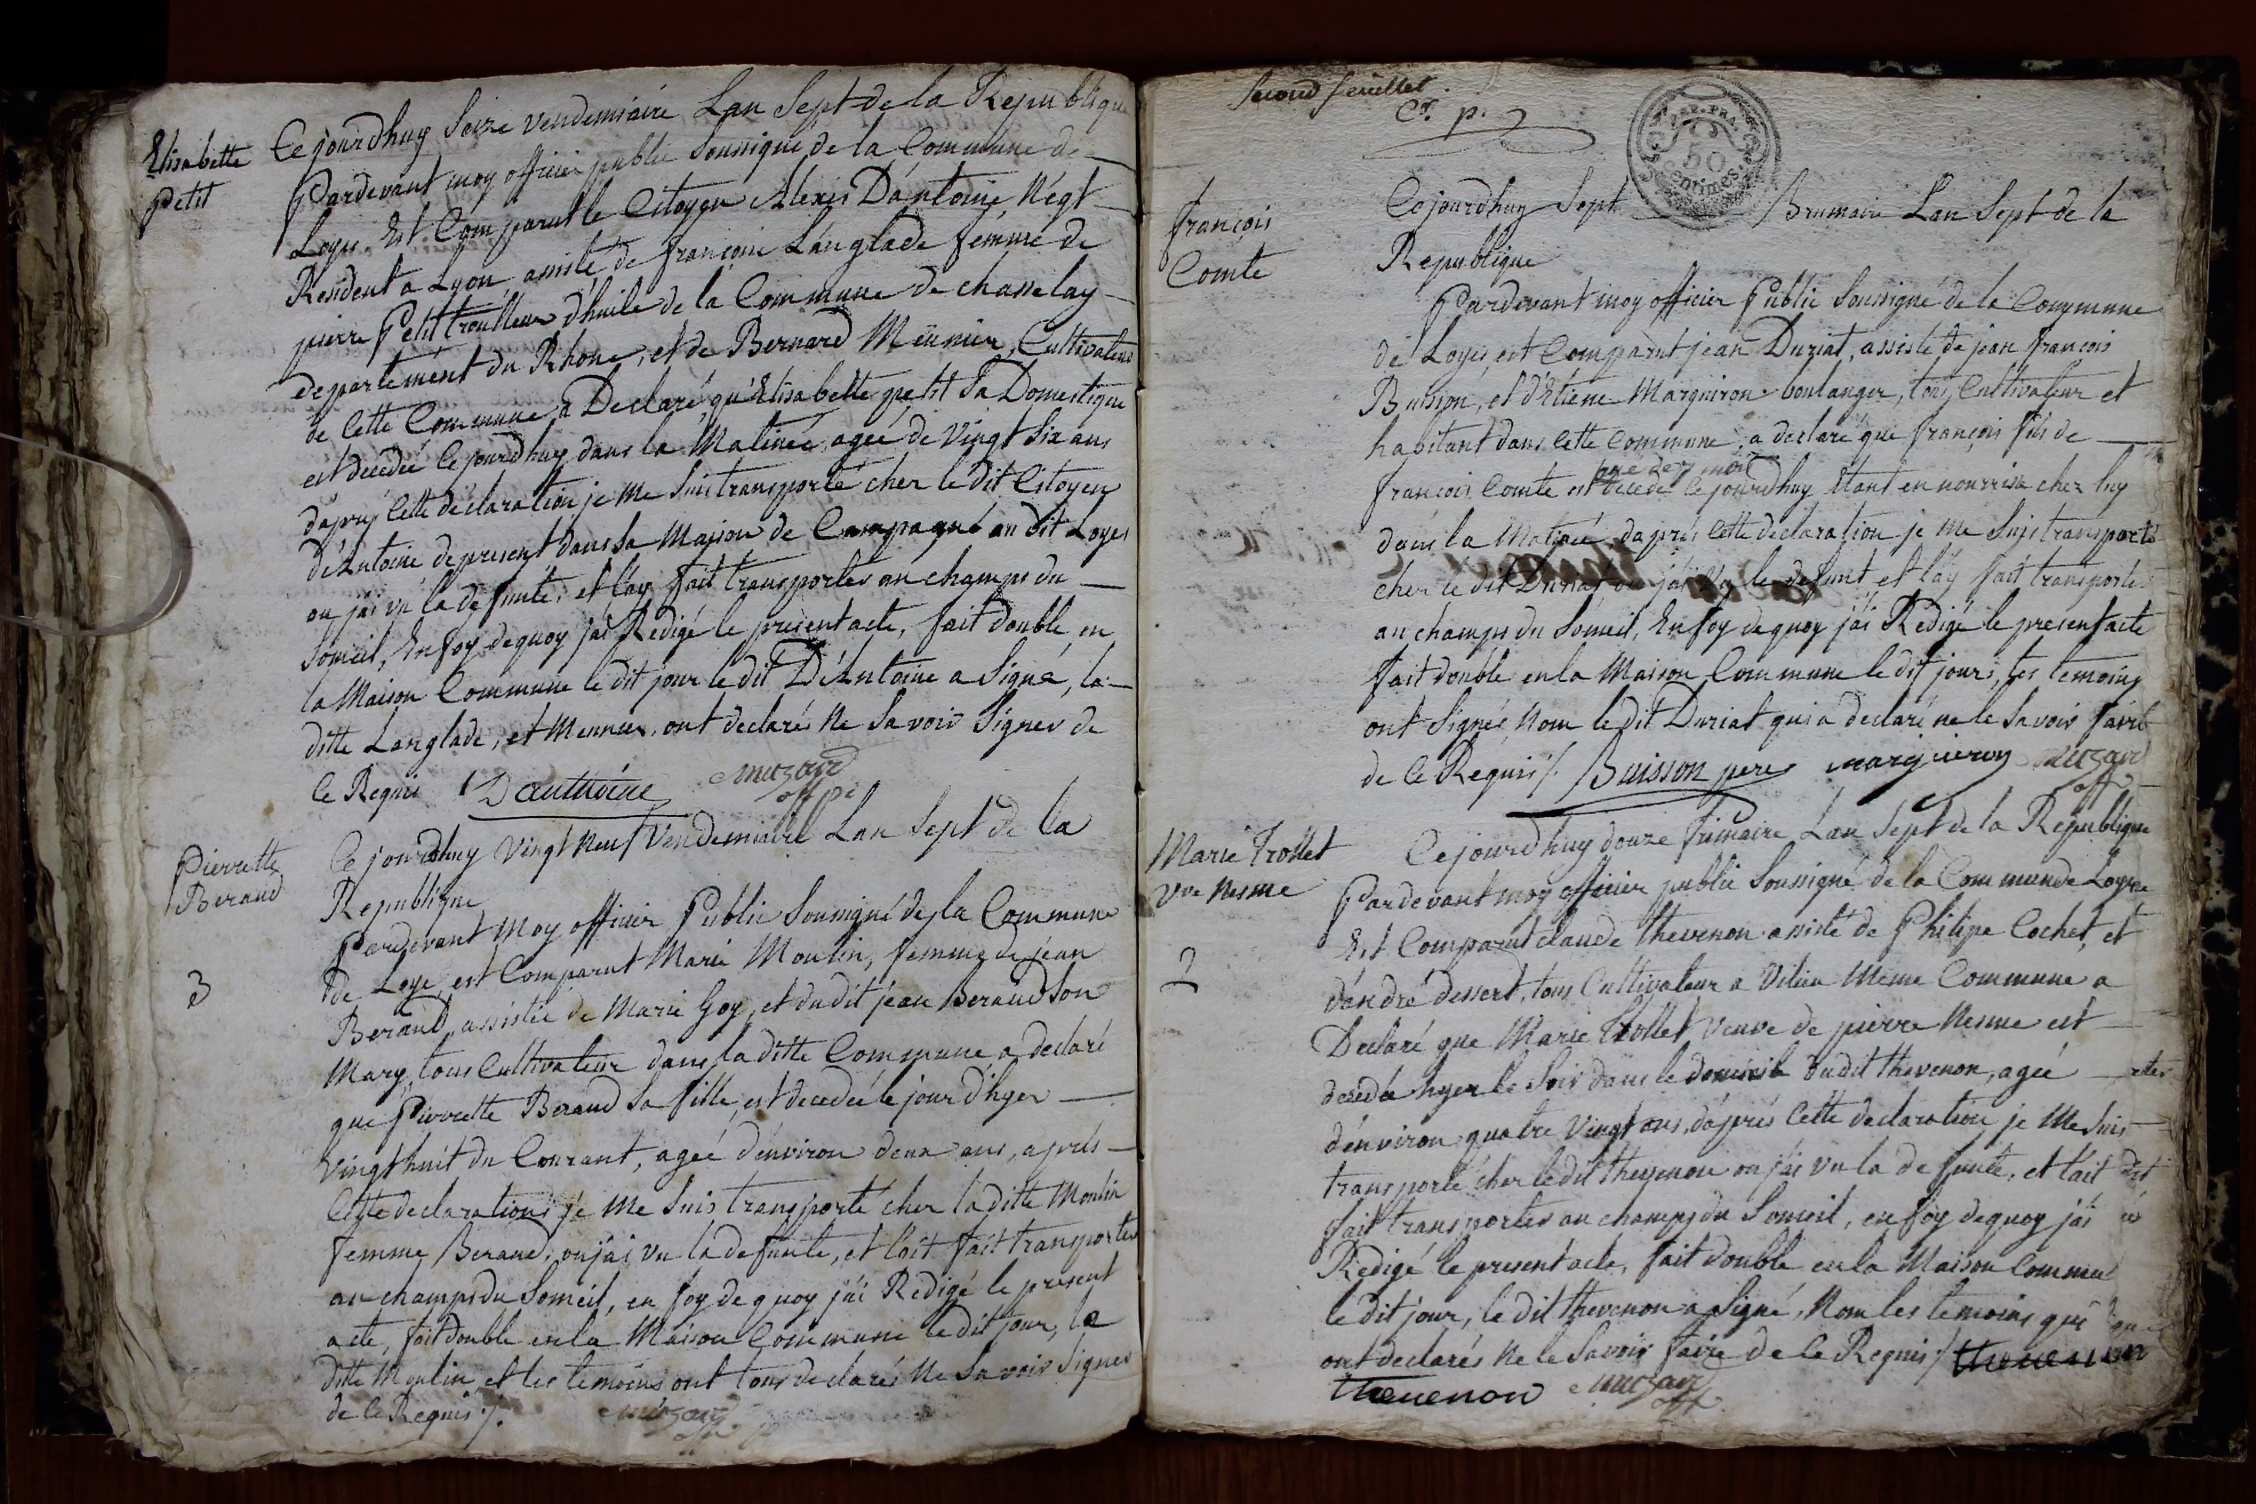 Elisabette
Petit
Cejourdhuy Seize vendemiaire Lan Sept de la Republique
Pardevant moy officier public Soussigné de la Commune de
Loyes. Est Comparut le Citoyen Alexis Dantoine Négt
Résident a Lyon, assisté de françoise Langlade femme de
pierre Petit troulleur d'huile de la Commune de chasselay
departement du Rhone, et de Bernard Meünier, Cultivateur
de Cette Commune a Declaré, qu'Elisabette petit Sa Domestique
est decedée Cejourdhuy dans la Matinée, agée de Vingt Six ans
dapres Cette déclaration je me Suis transporté cher le dit Citoyen
déAntoine de present dans Sa Maison de Campagne au dit Loyes
ou j'ai vu la defunte, et l'ay fait transporter au champs du
Someil, En foy de quoy j'ai Rédigé le present acte, fait double en
la Maison Commune le dit jour le dit DéAntoine a Signé, la
ditte Langlade, et Meunier, ont declaré Ne Savoir Signer de
Ce Requis Danthoine Muzard
off. p.
Pierrette
Beraud
3
Cejourdhuy Vingt Neuf Vendemiaire Lan Sept de la
Republique
Pardevant Moy officier Public Soussigné de la Commune
de Loye, est Comparut Marie Moulin, femme de jean
Beraud, assistée de Marie Goy, et dudit jean Beraud Son
Mary, tous Cultivateur dans la ditte Commune a declaré
que Pierrette Beraud Sa fille, est decedée le jour d'hyer
Vingt huit du Courant, agée d'environ deux ans, après
Cette declaration, je Me Suis transporté cher la ditte Moulin
femme Beraud, ou j'ai vu la defunte, et l'ait fait transporter
au champs du Someil, en foy de quoy j'ai Rédigé le present
acte, fait double en la Maison Commune le dit jour, la
ditte Moulin et les temoins ont tous declarés Ne Savoir Signer
de Ce Requis /. Muzard
Second feuillet
50
Centimes
françois
Comte
Cejourdhuy Sept Brumaire Lan Sept de la
Republique
Pardevant moy officier Public Soussigné de la Commune
de Loyes, est Comparut jean Duriat, assisté de jean françois
Buisson, et d'Etiene Marguiron boulanger, tous Cultivateur et
habitant dans Cette Commune, a declaré que françois fils de
agé de 7 mois
françois Comte est decedé Cejourdhuy Etant en nourrise cher luy
dans la Matinée, dapres Cette declaration je me Suis transporté
cher le dit Duriat ou j'ai vu le defunt et l'ay fait transporter
au champs du Someil, En foy de quoy j'ai Rédigé le present acte
fait double en la Maison Commune le dit jour, les temoins
ont Signée Nom le dit Duriat qui a declaré ne le Savoir faire
de Ce Requis /. Buisson pere marguiron Muzard
off
Marie Trollet
Vve Nesme
2
Cejourdhuy douze frimaire Lan Sept de la Republique
Pardevant moy officier public Soussigné de la Commune de Loyes
Est Comparut claude thevenon assisté de Philipe Cochet, et
d'andré dessert, tous Cultivateur a Vilieu Meme Commune a
Declaré que Marie Trollet Veuve de pierre Nesme est
decedée hyer le Soir dans le domicile du dit thevenon, agée
d'environ quatre Vingt ans, dapres Cette declaration je Me Suis
transporté cher le dit thevenon ou j'ai vu la defunte, et l'ait
fait transporter au champs du Someil, en foy de quoy j'ai
Rédigé le present acte, fait double en la Maison Commune
le dit jour, le dit thevenon a Signé, Nom les temoins qui
ont declarés Ne le Savoir faire de Ce Requis / thevenon
thevenon Muzard
off